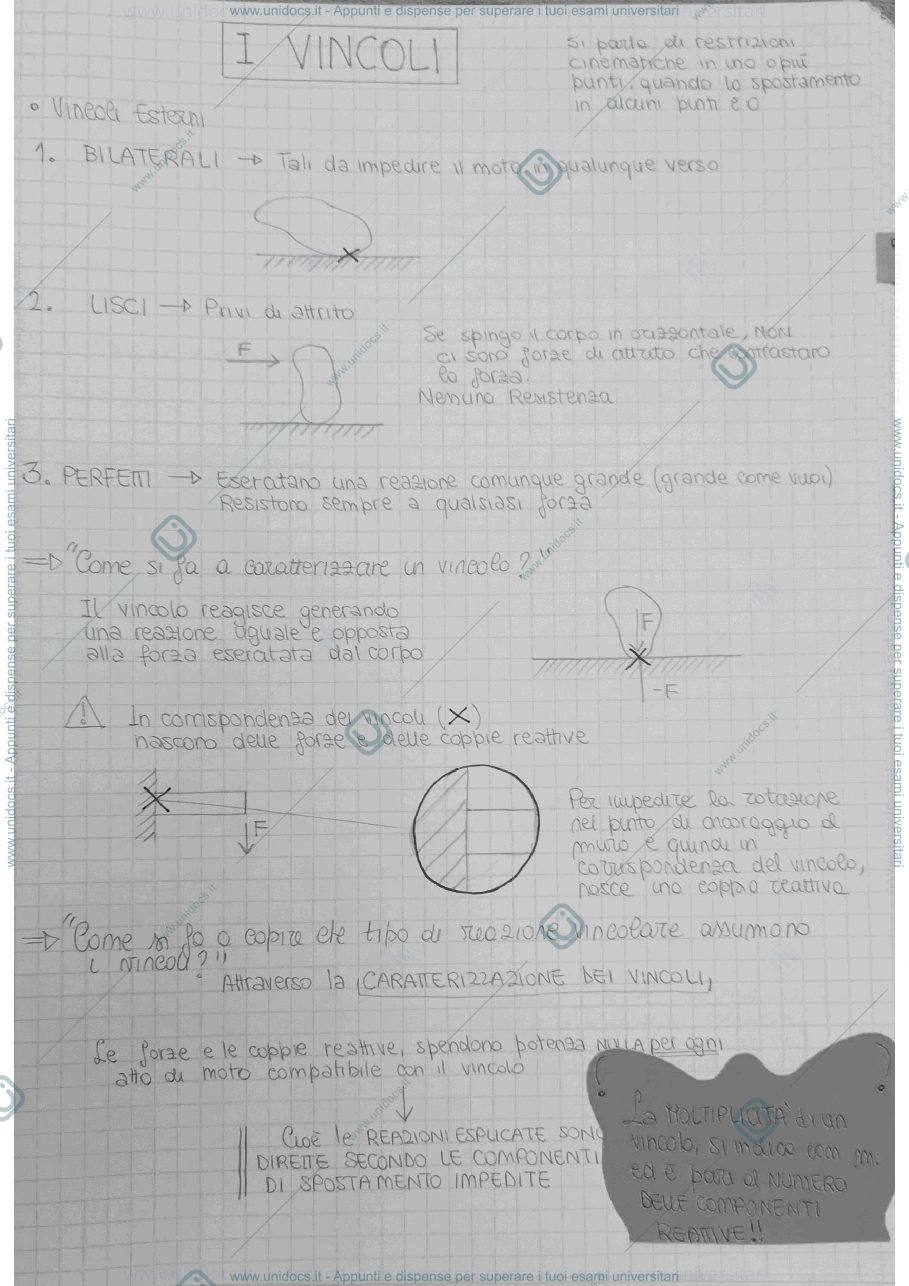 www.unidocs.it - Appunti e dispense per superare i tuoi esami universitari
I VINCOLI
Si parla di restrizioni
cinematiche in uno o più
punti, quando lo spostamento
in alcuni punti è 0
• Vincoli Esterni
1. BILATERALI → Tali da impedire il moto in qualunque verso
2. LISCI → Privi di attrito
F
Se spingo il corpo in orizzontale, NON
ci sono forze di attrito che contrastano
la forza.
Nessuna Resistenza
3. PERFETTI → Esercitano una reazione comunque grande (grande come vuoi)
Resistono sempre a qualsiasi forza
⇒ "Come si fa a caratterizzare un vincolo?"
Il vincolo reagisce generando
una reazione uguale e opposta
alla forza esercitata dal corpo
F
-F
⚠ In corrispondenza dei vincoli (X)
nascono delle forze e delle coppie reattive
F
Per impedire la rotazione
nel punto di ancoraggio al
muro e quindi in
corrispondenza del vincolo,
nasce una coppia reattiva
⇒ "Come si fa a capire che tipo di reazione vincolare assumono
i vincoli?"
Attraverso la CARATTERIZZAZIONE DEI VINCOLI,
Le forze e le coppie reattive, spendono potenza NULLA per ogni
atto di moto compatibile con il vincolo
Cioè le REAZIONI ESPLICATE SONO
DIRETTE SECONDO LE COMPONENTI
DI SPOSTAMENTO IMPEDITE
La MOLTIPLICITÀ di un
vincolo, si indica con m.
ed è pari al NUMERO
DELLE COMPONENTI
REATTIVE!!
www.unidocs.it - Appunti e dispense per superare i tuoi esami universitari